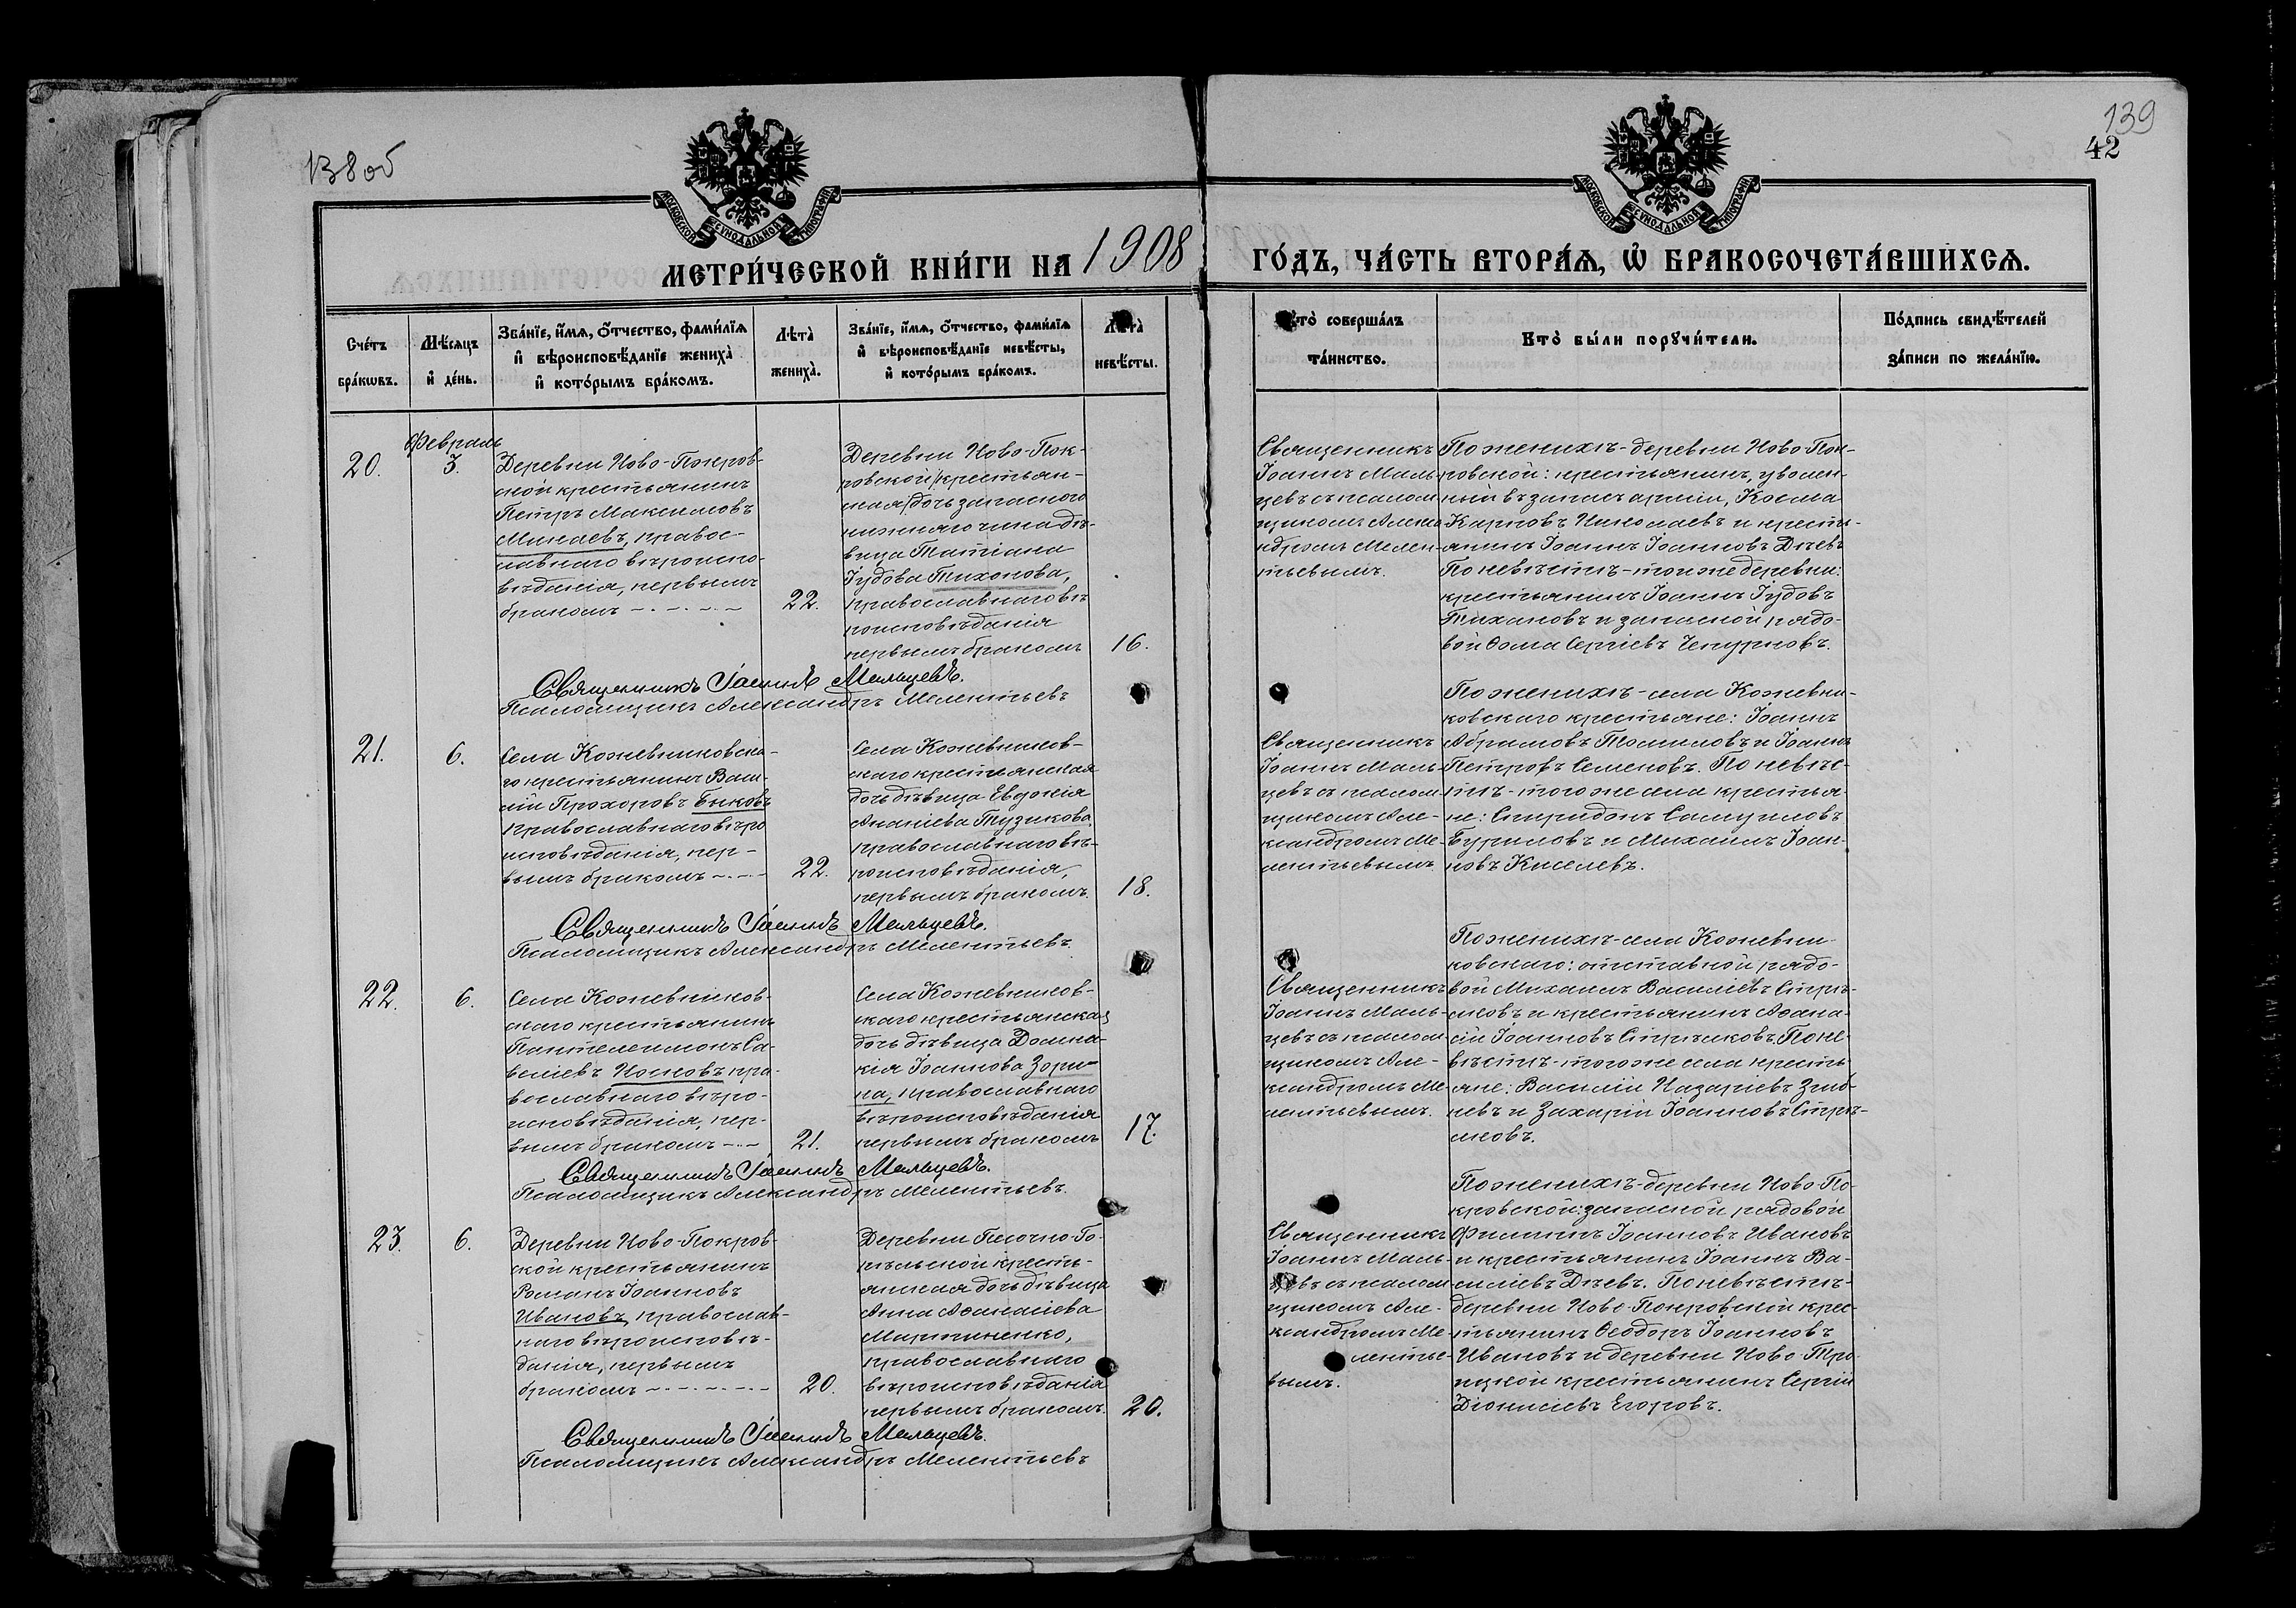 138об
139
42
МОСКОВСКОЙ СѴНОДАЛЬНОЙ ТИПОГРАФІИ
МОСКОВСКОЙ СѴНОДАЛЬНОЙ ТИПОГРАФІИ
МЕТРИ́ЧЕСКОЙ КНИ́ГИ НА 1908 ГО́ДЪ, ЧА́СТЬ ВТОРА́Ѧ, Ѽ БРАКОСОЧЕТА́ВШИХСѦ.
Сче́тъ
бра́кѡвъ.
Мѣ́сяцъ
и҆ де́нь.
Зва́нїе, и҆́мѧ, о҆́тчество, фами́лїѧ
и҆ вѣроисповѣ́данїе жениха̀
и҆ кото́рымъ бра́комъ.
Лѣта̀
жениха̀.
Зва́нїе, и҆́мѧ, о҆́тчество, фами́лїѧ
и҆ вѣроисповѣ́данїе невѣ́сты,
и҆ кото́рымъ бра́комъ.
Лѣта̀
невѣ́сты.
Кто̀ соверша́лъ
та́инство.
Кто̀ бы́ли порꙋчи́тели.
По́дпись свидѣ́телей
за́писи по жела́нїю.
20.
Февраль
3.
Деревни Ново-Покров-
ской крестьянинъ
Петръ Максимовъ
Минаевъ, правос-
лавнаго вѣроиспо-
вѣданія, первымъ
бракомъ
22.
Деревни Ново-Пок-
ровской/крестьян-
ская/дочь запаснаго
нижняго чина дѣ-
вица Татіана
Іудова Тихонова,
православнаго вѣ-
роисповѣданія
первымъ бракомъ
16.
Священникъ
Іоаннъ Маль-
цевъ съ псалом-
щикомъ Алекса-
ндромъ Мелен-
тьевымъ.
По женихѣ-деревни Ново-Пок-
ровской: крестьянинъ, уволен-
ный въ запасъ арміи, Косма
Карповъ Николаевъ и кресть-
янинъ Іоаннъ Іоанновъ Дѣевъ
По невѣстѣ-той же деревни:
крестьянинъ Іоаннъ Іудовъ
Тихановъ и запасной рядо-
вой Ѳома Сергіевъ Чепурновъ.
Священникъ Іоаннъ Мальцевъ.
Псаломщикъ Александръ Мелентьевъ
21.
6.
Села Кожевниковска-
го крестьянинъ Васи-
лій Прохоровъ Быковъ
православнаго вѣро
исповѣданія, пер-
вымъ бракомъ
22.
Села Кожевников-
скаго крестьянская
дочь дѣвица Евдокія
Ананіева Тузикова
православнаго вѣ-
роисповѣданія,
первымъ бракомъ.
18.
Священникъ
Іоаннъ Маль-
цевъ съ псалом-
щикомъ Але-
ксандромъ Ме-
лентьевымъ.
По женихѣ-села Кожевни-
ковскаго крестьяне: Іоаннъ
Абрамовъ Томиловъ и Іоаннъ
Петровъ Семеновъ. По невѣс-
тѣ-того же села крестья-
не: Спиридонъ Самуиловъ
Буриловъ и Михаилъ Іоан-
новъ Киселевъ.
Священникъ Іоаннъ Мальцевъ.
Псаломщикъ Александръ Мелентьевъ.
22.
6.
Села Кожевников-
скаго крестьянинъ
Пантелеимонъ Са-
веліевъ Носковъ пра-
вославнаго вѣро-
исповѣданія, пер-
вымъ бракомъ
21.
Села Кожевников-
скаго крестьянская
дочь дѣвица Домни-
кія Іоаннова Зори-
на, православнаго
вѣроисповѣданія
первымъ бракомъ
17.
Священникъ
Іоаннъ Маль-
цевъ съ псалом-
щикомъ Але-
ксандромъ Ме-
лентьевымъ.
По женихѣ-села Кожевни-
ковскаго: отставной рядо-
вой Михаилъ Василіевъ
и крестьянинъ Аѳана-
сій Іоанновъ По не-
вѣстѣ-того же села кресть-
яне: Василій Назаріевъ
и Захарій Іоанновъ
Священникъ Іоаннъ Мальцевъ.
Псаломщикъ Александръ Мелентьевъ.
23.
6.
Деревни Ново-Покров-
ской крестьянинъ
Романъ Іоанновъ
Ивановъ, православ-
наго вѣроисповѣ-
данія, первымъ
бракомъ
20.
Деревни Песочно-Го-
рѣльской кресть-
янская дочь дѣвица
Анна Аѳанасіева
Мартиненко,
православнаго
вѣроисповѣданія
первымъ бракомъ.
20.
Священникъ
Іоаннъ Маль-
цевъ съ псалом-
щикомъ Але-
ксандромъ Ме-
лентье-
вымъ.
По женихѣ-деревни Ново-По-
кровской: запасной рядовой
Филиппъ Іоанновъ Ивановъ
и крестьянинъ Іоаннъ Ва-
силіевъ Дѣевъ. По невѣстѣ-
деревни Ново-Покровской крес-
тьянинъ Ѳеодоръ Іоанновъ
Ивановъ и деревни Ново-Тро-
ицкой крестьянинъ Сергій
Діонисіевъ Егоровъ.
Священникъ Іоаннъ Мальцевъ.
Псаломщикъ Александръ Мелентьевъ